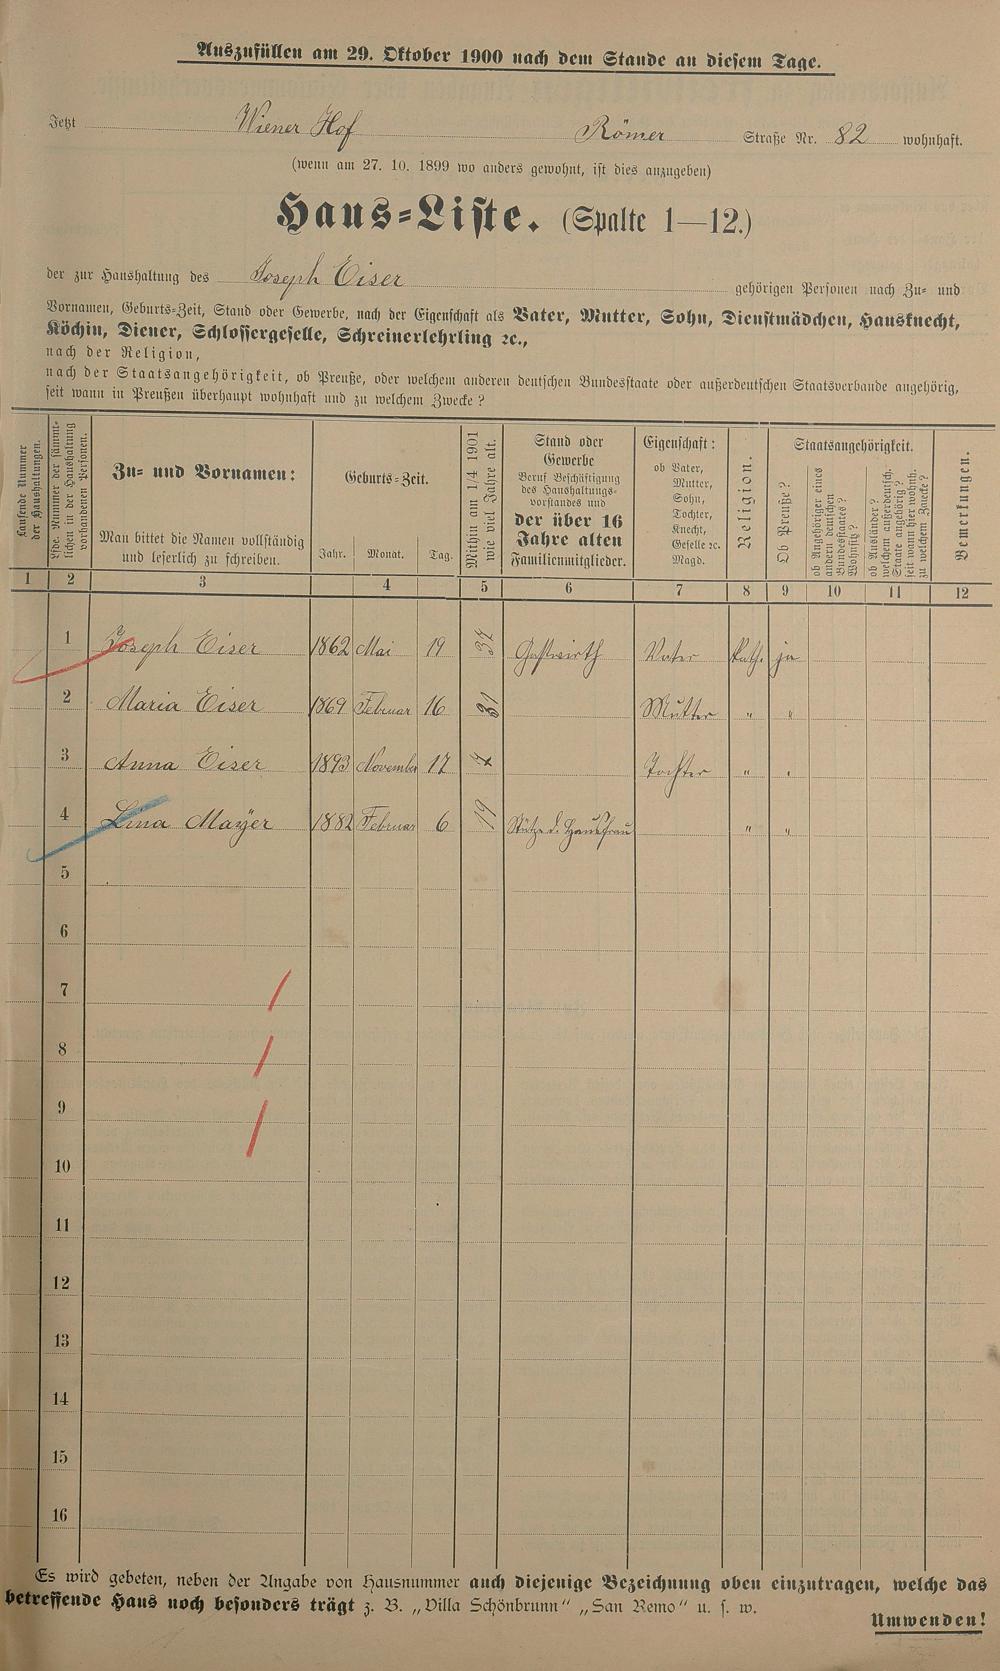 Auszufüllen am 29. Oktober 1900 nach dem Stande an diesem Tage.
Jetzt Wiener Hof Römer Straße Nr. 82 wohnhaft.
(wenn am 27. 10. 1899 wo anders gewohnt, ist dies anzugeben)
Haus=Liste. (Spalte 1—12.)
der zur Haushaltung des Joseph Eiser gehörigen Personen nach Zu= und
Vornamen, Geburts=Zeit, Stand oder Gewerbe, nach der Eigenschaft als Vater, Mutter, Sohn, Dienstmädchen, Hausknecht,
Köchin, Diener, Schlossergeselle, Schreinerlehrling ꝛc.,
nach der Religion,
nach der Staatsangehörigkeit, ob Preuße, oder welchem anderen deutschen Bundesstaate oder außerdeutschen Staatsverbande angehörig,
seit wann in Preußen überhaupt wohnhaft und zu welchem Zwecke?
Laufende Nummer
der Haushaltungen.
Lfde. Nummer der sämmt=
lichen in der Haushaltung
vorhandenen Personen.
Zu= und Vornamen:
Man bittet die Namen vollständig
und leserlich zu schreiben.
Geburts=Zeit.
Jahr. Monat. Tag.
Mithin am 1/4 1901
wie viel Jahre alt.
Stand oder
Gewerbe
Beruf Beschäftigung
des Haushaltungs=
vorstandes und
der über 16
Jahre alten
Familienmitglieder.
Eigenschaft:
ob Vater,
Mutter,
Sohn,
Tochter,
Knecht,
Geselle ꝛc.
Magd.
Religion.
Staatsangehörigkeit.
Ob Preuße?
ob Angehöriger eines
andern deutschen
Bundesstaates?
Wohnsitz?
ob Ausländer?
welchem außerdeutsch.
Staate angehörig?
seit wann hier wohnh.
zu welchem Zwecke?
Bemerkungen.
1 2 3 4 5 6 7 8 9 10 11 12
1 Joseph Eiser 1862 Mai 19 Gastwirth Vater Kath. ja
2 Maria Eiser 1869 Februar 16 31 Mutter " "
3 Anna Eiser 1893 November 17 7 Tochter " "
4 Lina Mayer 1882 Februar 6 19 Stütze d. Hausfrau " "
5
6
7
8
9
10
11
12
13
14
15
16
Es wird gebeten, neben der Angabe von Hausnummer auch diejenige Bezeichnung oben einzutragen, welche das
betreffende Haus noch besonders trägt z. B. „Villa Schönbrunn" „San Remo" u. s. w.
Umwenden!